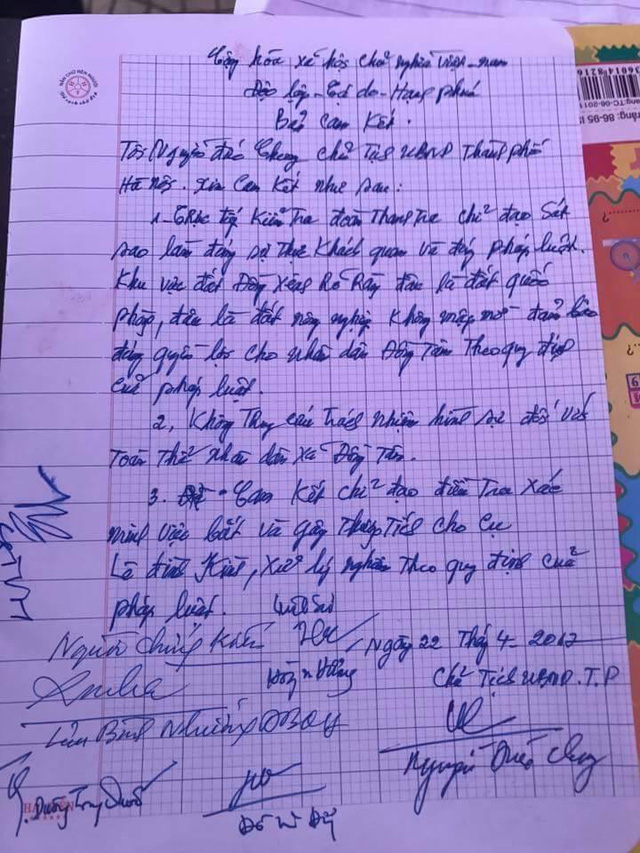 Cộng hòa xã hội chủ nghĩa Việt-nam
Độc lập - Tự do - Hạnh phúc
Bản Cam Kết.
Tôi Nguyễn Đức Chung Chủ Tịch UBND Thành phố
Hà Nội. Xin Cam Kết như sau:
1- Trực tiếp Kiểm Tra đoàn Thanh Tra chỉ đạo Sát
sao làm đúng sự thật Khách quan và đúng pháp luật.
Khu vực đất Đồng Xênh Rõ Ràng đâu là đất quốc
phòng, đâu là đất nông nghiệp Không mập mờ đảm bảo
đúng quyền lợi cho nhân dân Đồng Tâm Theo quy định
của pháp luật.
2, Không Truy cứu Trách nhiệm hình sự đối với
Toàn Thể nhân dân xã Đồng Tâm.
3. Cam Kết chỉ đạo điều Tra Xác
minh việc bắt và gây Thương Tích cho Cụ
Lê đình Kình, Xử lý nghiêm Theo quy định của
pháp luật.
Người Chứng Kiến
Ngày 22 Tháng 4-2017
Chủ Tịch UBND.T.P
Lưu Bình Nhưỡng ĐBQH
Nguyễn Đức Chung
Dương Trung Quốc